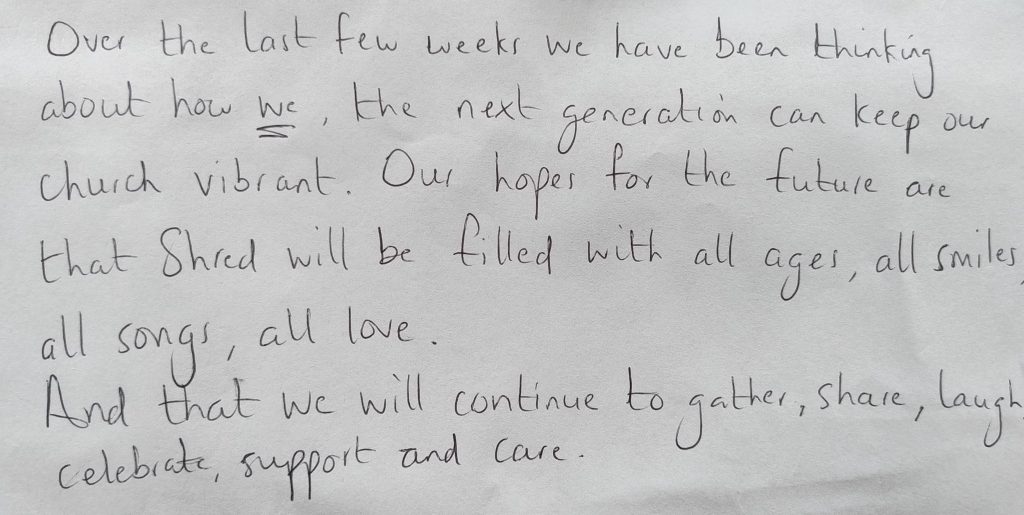 Over the last few weeks we have been thinking
about how we, the next generation can keep our
church vibrant. Our hopes for the future are
that Shred will be filled with all ages, all smiles,
all songs, all love.
And that we will continue to gather, share, laugh,
celebrate, support and care.